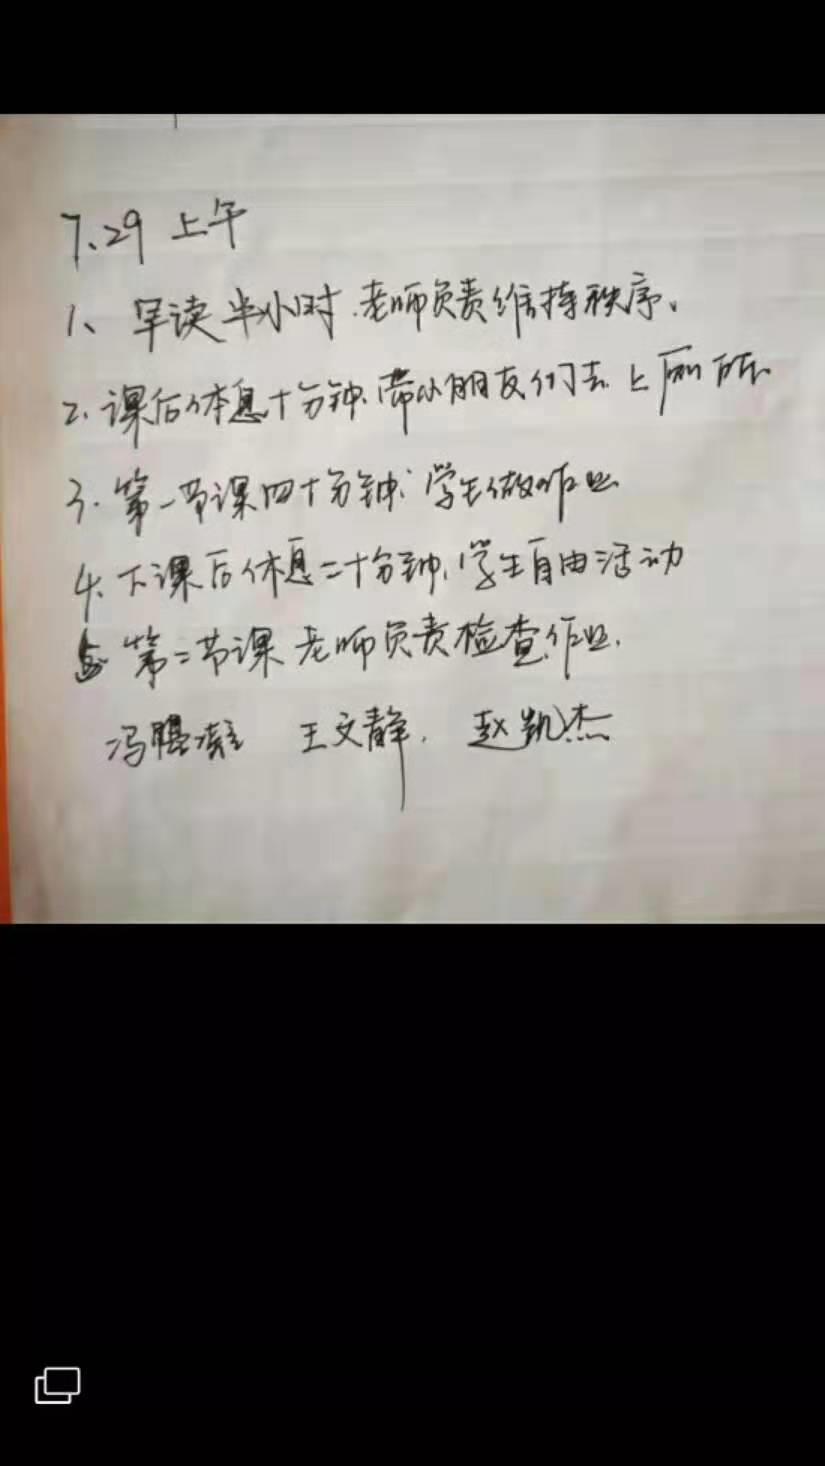 7.29 上午
1、早读半小时.老师负责维持秩序.
2.课后休息十分钟.带小朋友们去上厕所.
3.第一节课四十分钟:学生做作业
4.下课后休息二十分钟.学生自由活动
5.第二节课 老师负责检查作业.
冯 王文静. 赵凯杰